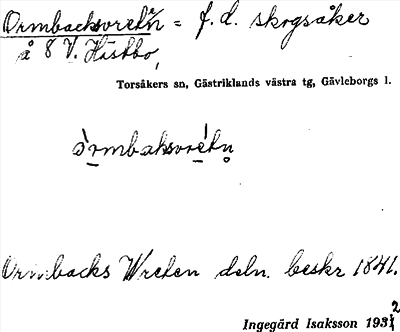 Ormbacksvreten = f. d. skogsåker
å 8 V. Hästbo,
Torsåkers sn, Gästriklands västra tg, Gävleborgs l.
òrmbaksvrétn̥
Ormbacks Wreten deln. beskr 1841.
Ingegärd Isaksson 1932